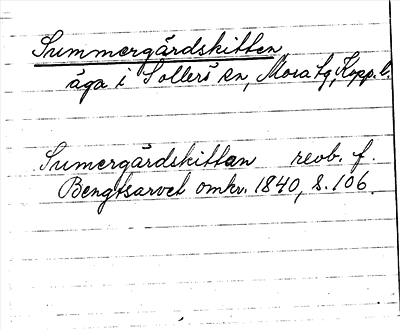 Summergårdskitten,
äga i Sollerö sn, Mora tg, Kopp. l.
Sumergårdskittan reob. f.
Bengtsarvet omkr. 1840, s. 106.